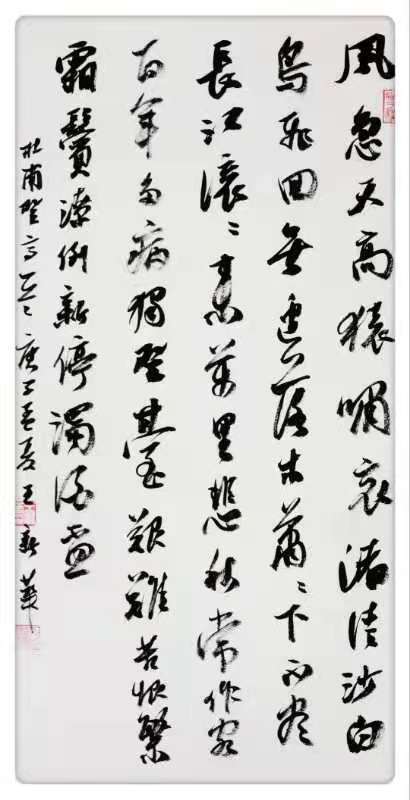 風急天高猿嘯哀渚清沙白
鳥飛回無邊落木蕭〻下不盡
長江滾〻來萬里悲秋常作客
百年多病獨登臺艱難苦恨繁
霜鬢潦倒新停濁酒盃
杜甫登高 庚子 夏王新華